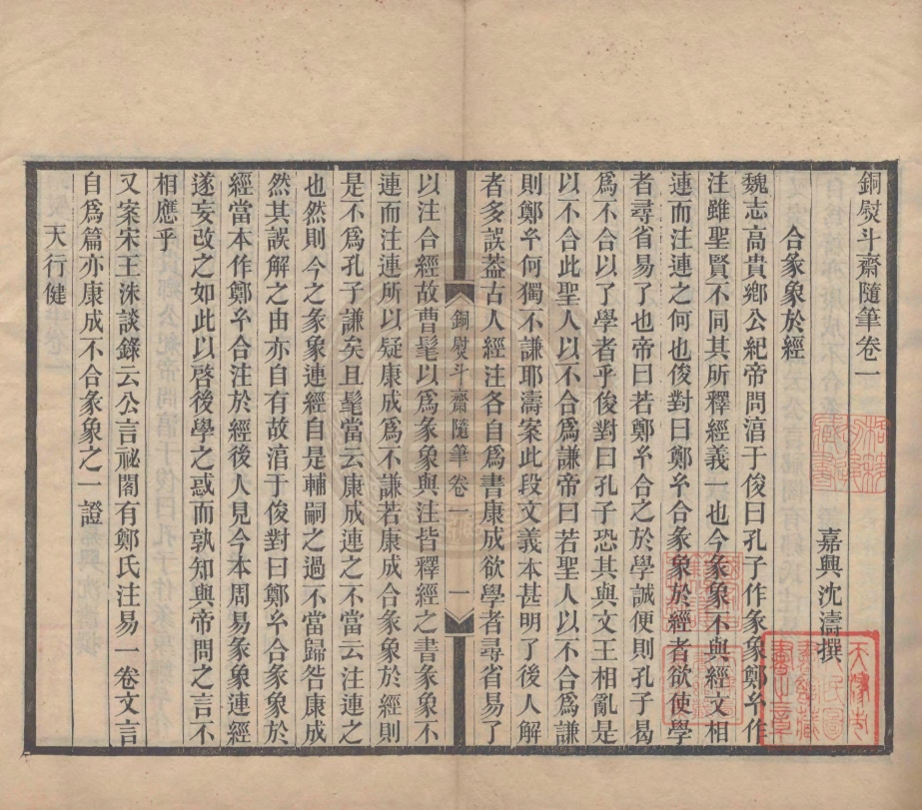 銅熨斗齋隨筆卷一
嘉興沈濤撰
合彖象於經
魏志高貴鄉公紀帝問淯于俊曰孔子作彖象鄭𢆯作
注雖聖賢不同其所釋經義一也今彖象不與經文相
連而注連之何也俊對曰鄭𢆯合彖象於經者欲使學
者尋省易了也帝曰若鄭𢆯合之於學誠便則孔子曷
爲不合以了學者乎俊對曰孔子恐其與文王相亂是
以不合此聖人以不合爲謙帝曰若聖人以不合爲謙
則鄭𢆯何獨不謙耶濤案此段文義本甚明了後人解
者多誤葢古人經注各自爲書康成欲學者尋省易了
銅熨斗齋隨筆 卷一 一
以注合經故曹髦以爲彖象與注皆釋經之書彖象不
連而注連所以疑康成爲不謙若康成合彖象於經則
是不爲孔子謙矣且髦當云康成連之不當云注連之
也然則今之彖象連經自是輔嗣之過不當歸咎康成
然其誤解之由亦自有故淯于俊對曰鄭𢆯合彖象於
經當本作鄭𢆯合注於經後人見今本周易彖象連經
遂妄改之如此以啓後學之惑而孰知與帝問之言不
相應乎
又案宋王洙談錄云公言祕閣有鄭氏注易一卷文言
自爲篇亦康成不合彖象之一證
天行健